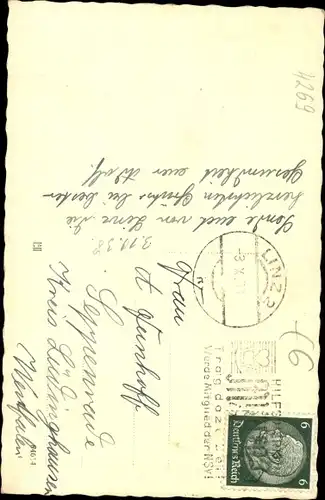 4269
Sende euch von Linz die
herzlichsten Grüße bei bester
Gesundheit euer Adolf.
3.11.38.
Frau
A Funhoff
Seppenrade
Kreis Lüdinghausen
Westfalen
LINZ 2
Trag dazu bei
Werde Mitglied der NSV!
HILFS
6
Deutsches Reich
6